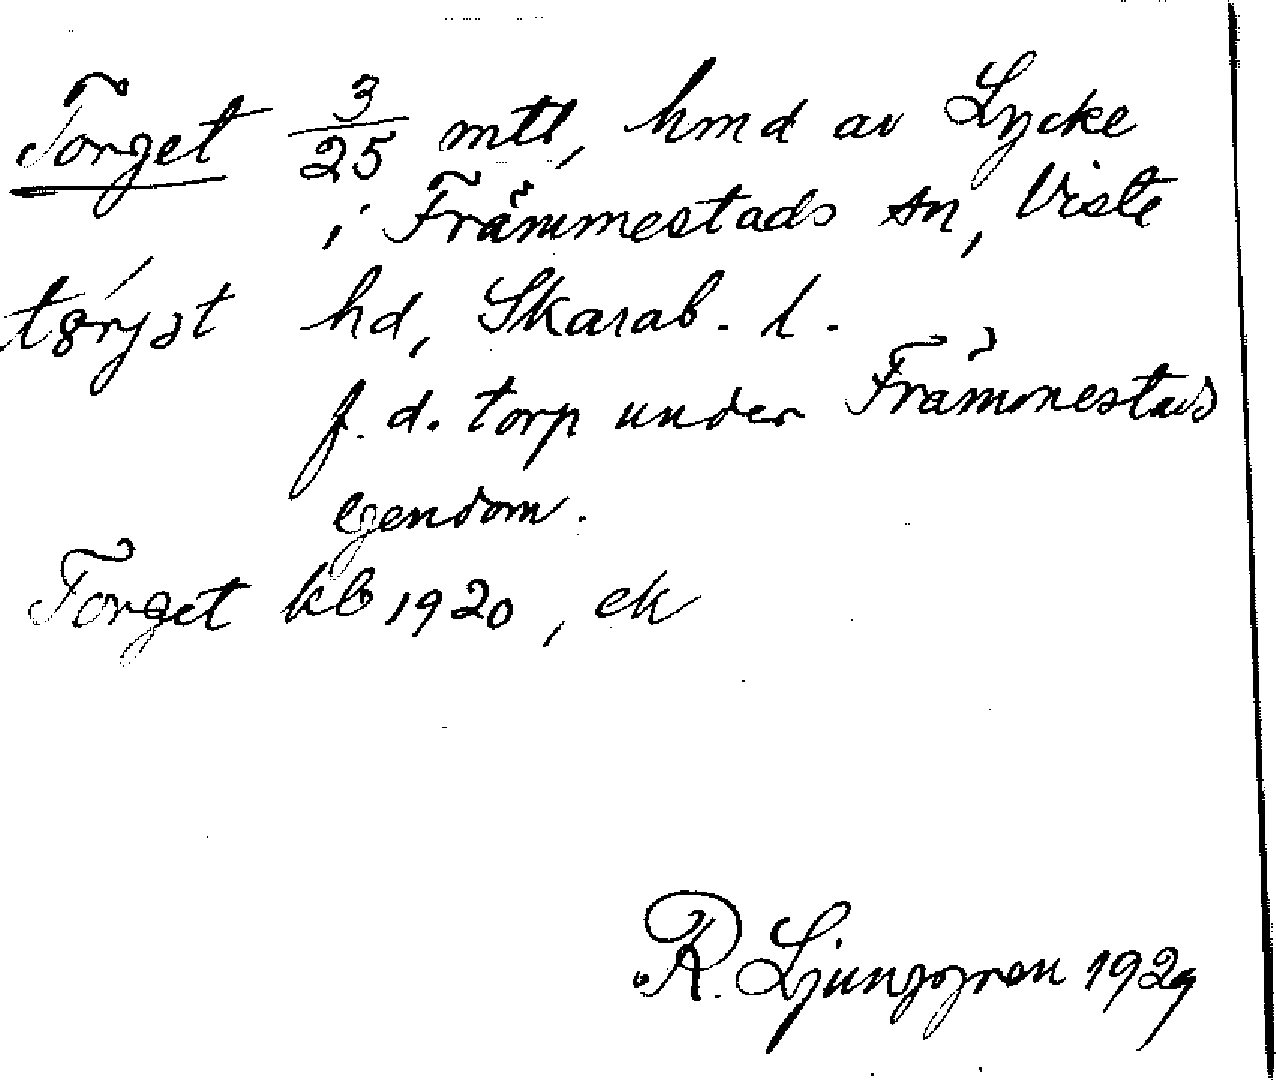 Torget 3/25 mtl, hmd av Lycke
i Främmestads sn, Viste
hd, Skarab. l.
f. d. torp under Främmestads
egendom.
Torget kb 1920, ek
R. Ljunggren 1929